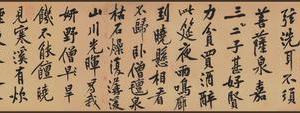 弦洗耳不須
菩薩泉嘉
三二子甚好賢
力貧買酒醉
此筵夜雨鳴廊
到曉懸相看
不歸臥僧氈泉
枯石燥復潺湲
山川光暉為我
妍野僧早
饑不能饘曉
見寒溪有炊